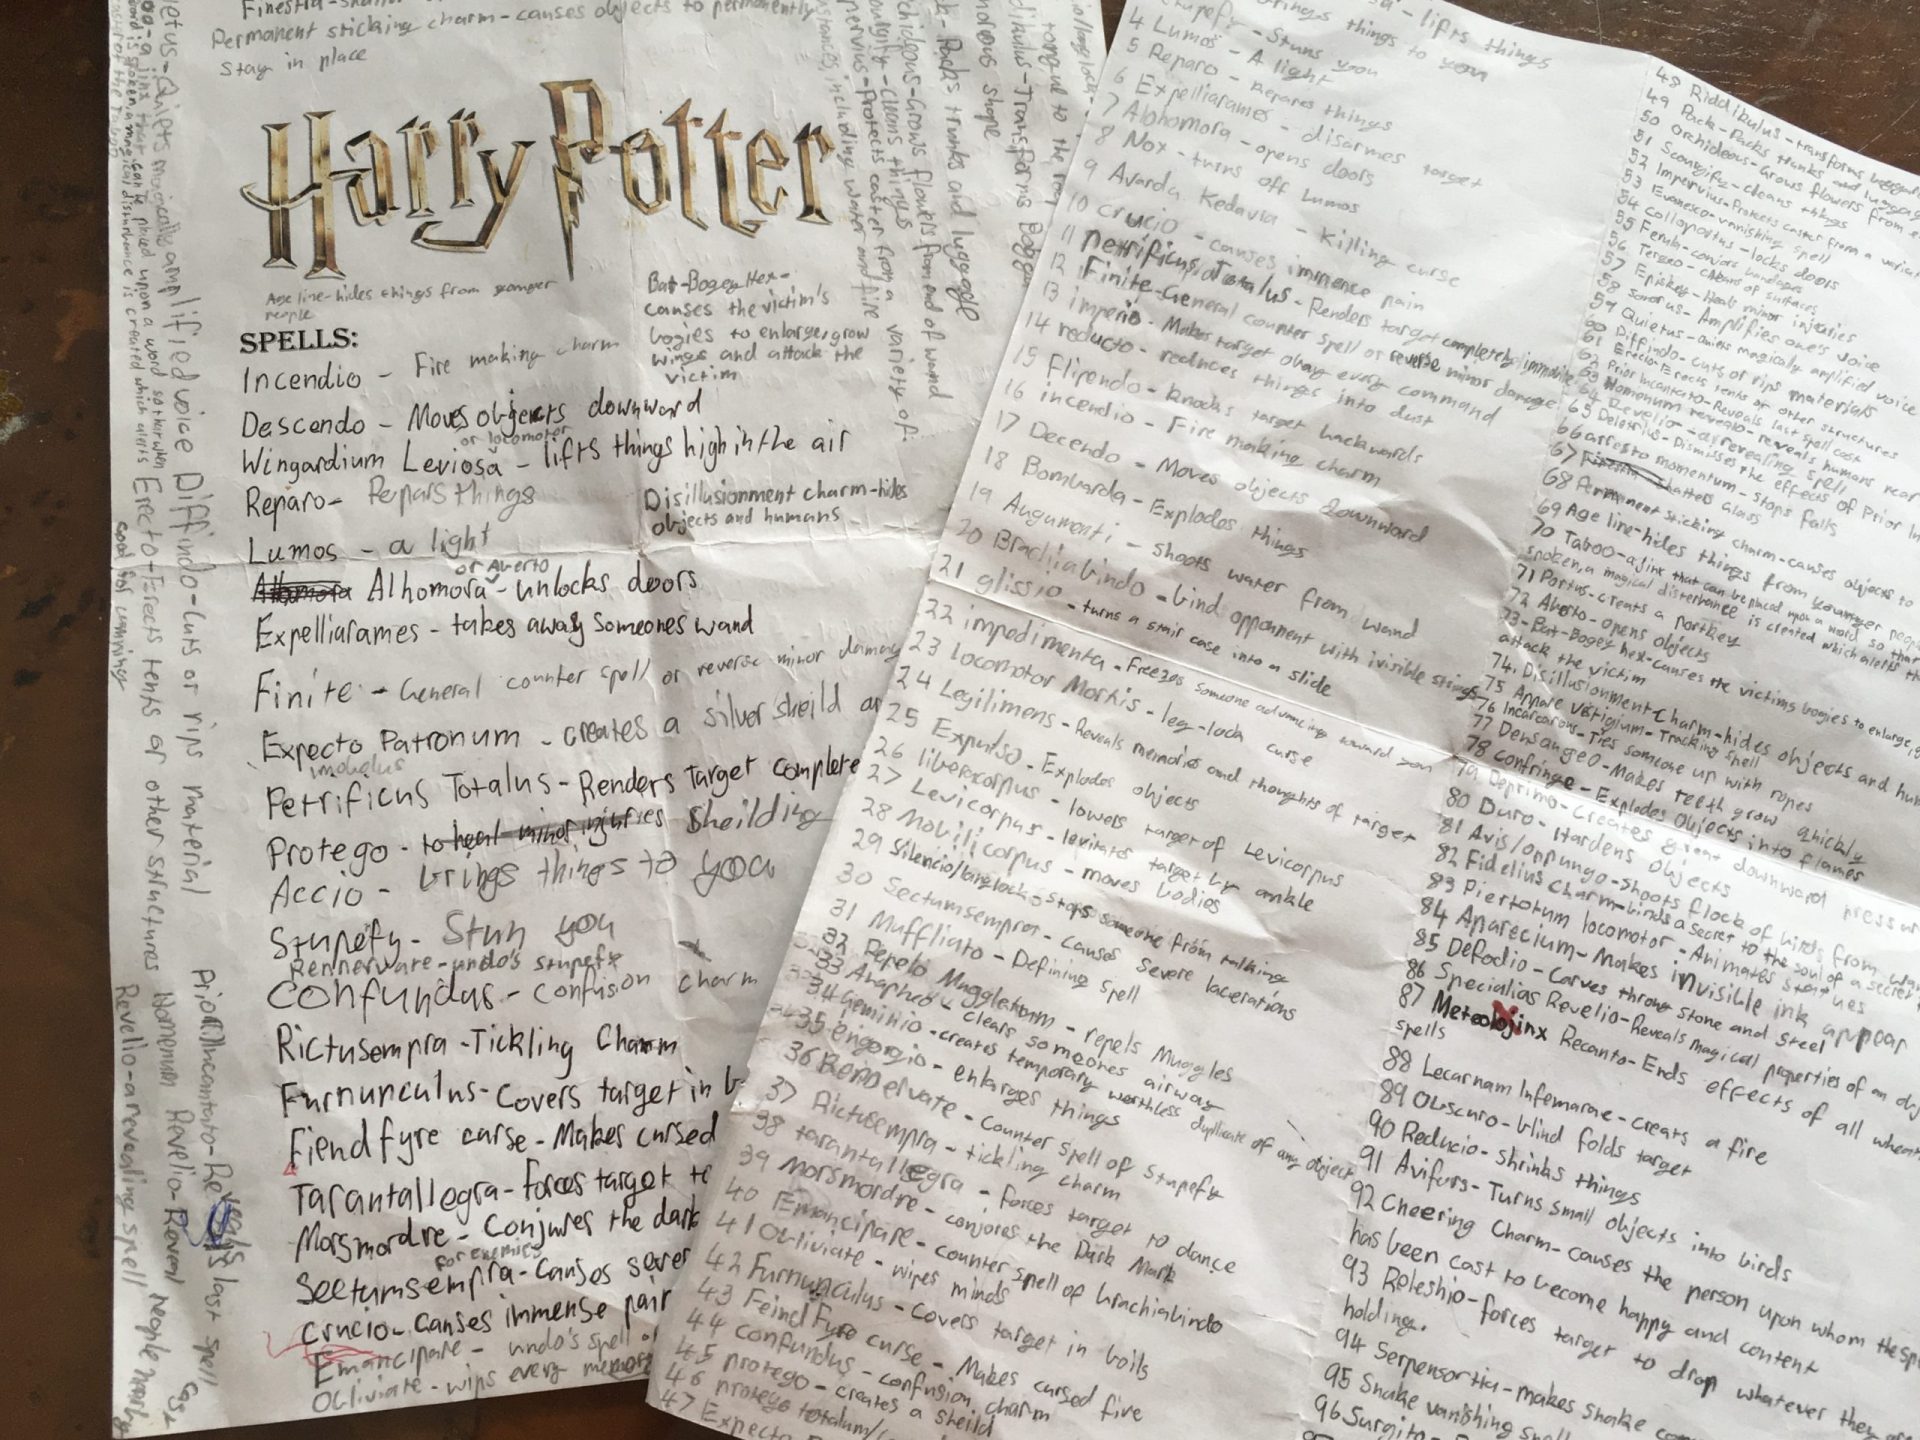 Finestra-
Permanent sticking charm-causes objects to permanently
stay in place
Harry Potter
Age line-hides things from younger
people
Bat-Bogey Hex-
causes the victim's
bogies to enlarge, grow
wings and attack the
victim
SPELLS:
Incendio - Fire making charm
Descendo - Moves objects downward
or locomotor
Wingardium Leviosa - lifts things high in the air
Reparo- Repars things
Disillusionment charm-hides
objects and humans
Lumos - a light
or Aberto
Alhomora - unlocks doors
Expelliarames - takes away someones wand
Finite - General counter spell or reverse minor damage
Expecto Patronum - creates a silver sheild
imobulus
Petrificus Totalus - Renders target complete
Protego - to heal minor injuries sheilding
Accio - brings things to you
Stupefy - Stun you
Rennervate - undo's stupefy
Confundus - confusion charm
Rictusempra - Tickling Charm
Furnunculus - Covers target in b
Fiendfyre curse - Makes cursed
Tarantallegra - forces target to
Morsmordre - Conjures the dark
for enemies
Sectumsempra - Causes sever
Crucio - Causes immense pain
Emancipare - undo's spell of
Obliviate - wips every memory
Quietus - Quiets magically amplified voice Diffindo - Cuts or rips material Prior Incantato - Reveals last spell cast
Erecto - Erects tents or other structures Homenum Revelio - Reveal people nearby
good for camping Revelio - a revealing spell
Orchideous - Grows flowers from end of wand
Scourgify - cleans things
Impervius - Protects caster from a variety of
substances, including water and fire
Pack - Packs trunks and luggage
Riddikulus - Transforms Boggart
humorous shape
tongue to the roof
- lifts things
brings things to you
Stupefy - Stuns you
4 Lumos - A light
5 Reparo - repares things
6 Expelliarames - disarmes target
7 Alohomora - opens doors
8 Nox - turns off Lumos
9 Avarda Kedavia - Killing curse
10 crucio - causes immence pain
11 Petrificus Totalus - Renders target completely immobile
12 Finite - General counter spell or reverse minor damage
13 imperio - Makes target obay every command
14 reducto - reduces things into dust
15 Flipendo - knocks target backwards
16 incendio - Fire making charm
17 Decendo - Moves objects downward
18 Bombarda - Explodes things
19 Augumenti - shoots water from wand
20 Brachiabindo - bind opponent with ivisible strings
21 glissio - turns a stair case into a slide
22 impedimenta - Freezes someone advancing toward you
23 locomotor Mortis - leg-lock curse
24 Legilimens - Reveals memories and thoughts of target
25 Expulso - Explodes objects
26 liberacorpus - lowers target of Levicorpus
27 Levicorpus - levitates target by ankle
28 Mobilicorpus - moves bodies
29 Silencio/langlock - stops someone from talking
30 Sectumsempra - causes severe lacerations
31 Muffliato - Defining spell
32 Repelo Muggletum - repels Muggles
33 Anaphio - clears someones airway
34 Geminio - creates temporary worthless duplicate of any object
35 engorgio - enlarges things
36 Rennervate - Counter spell of Stupefy
37 Rictusempra - tickling charm
38 tarantallegra - forces target to dance
39 Morsmordre - conjores the Dark Mark
40 Emancipare - counter spell of brachiabindo
41 Obliviate - wipes minds
42 Furnunculus - covers target in boils
43 Feind Fyre curse - Makes cursed fire
44 confundus - confusion charm
45 protego - creates a sheild
46 protego totalum/
47 Expecto
48 Riddikulus - transforms boggart
49 Pack - Packs trunks and luggage
50 Orchideous - Grows flowers from
51 Scourgify - cleans things
52 Impervius - Protects caster from a variety
53 Evanesco - vanishing spell
54 colloportus - locks doors
55 Ferula - conjors bandages
56 Tergeo - cleans of surfaces
57 Episkey - Heals minor injuries
58 Sonorus - Amplifies one's voice
59 Quietus - quiets magically amplified voice
60 Diffindo - cuts or rips materials
61 Erecto - Erects tents or other structures
62 Prior Incantato - Reveals last spell cast
63 Homonum revelio - reveals humans near
64 Revelio - a revealing spell
65 Deletrius - Dismisses the effects of Prior In
66 arresto momentum - stops falls
67 Finestra - shatters Glass
68 Permanent sticking charm - causes objects to
69 Age line - hides things from younger people
70 Taboo - a jinx that can be placed upon a word so that
spoken, a magical disterbance is created which alerts th
71 Portus - creats a portkey
72 Aberto - opens objects
73 - Bat-Bogey hex - causes the victims bogies to enlarge, g
attack the victim
74. Disillusionment Charm - hides objects and hum
75 Appare Vestigium - Tracking Spell
76 Incarcarous - Ties someone up with ropes
77 Densaugeo - Makes teeth grow quickly
78 Confringe - Explodes Objects into flames
79 Deprimo - Creates great downward pressur
80 Duro - Hardens objects
81 Avis/oppungo - Shoots flock of birds from wan
82 Fidelius Charm - binds a secret to the soul of a secret
83 Piertotum locomotor - Animates statues
84 Aparecium - Makes invisible ink appear
85 Defodio - Carves throug stone and steel
86 Specialias Revelio - Reveals magical properties of an obj
87 Meteolojinx Recanto - Ends effects of all wheat
spells
88 Lecarnam Infemarae - creats a fire
89 Obscuro - blind folds target
90 Reducio - shrinks things
91 Avifors - Turns small objects into birds
92 Cheering Charm - causes the person upon whom the sp
has been cast to become happy and content
93 Releshio - forces target to drop whatever they are
holding.
94 Serpensortia - makes snake
95 Snake vanishing spell
96 Surgito -